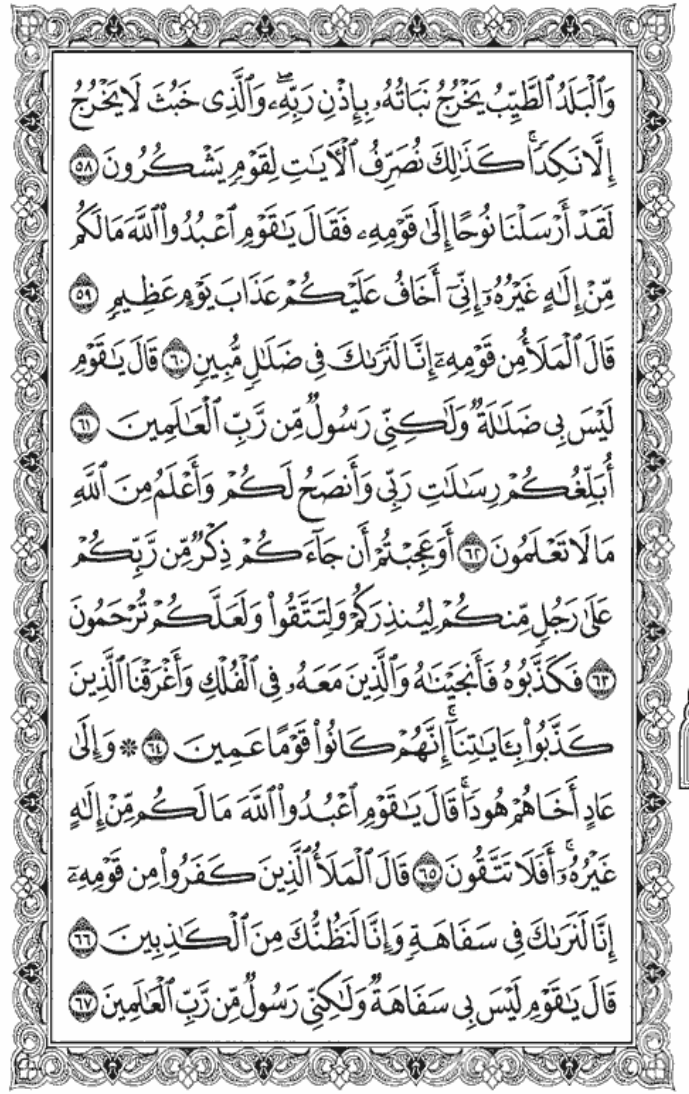 وَٱلۡبَلَدُ ٱلطَّيِّبُ يَخۡرُجُ نَبَاتُهُۥ بِإِذۡنِ رَبِّهِۦۖ وَٱلَّذِى خَبُثَ لَا يَخۡرُجُ
إِلَّا نَكِدًاۚ كَذَٰلِكَ نُصَرِّفُ ٱلۡأَيَٰتِ لِقَوۡمٍ يَشۡكُرُونَ ٥٨
لَقَدۡ أَرۡسَلۡنَا نُوحًا إِلَىٰ قَوۡمِهِۦ فَقَالَ يَٰقَوۡمِ ٱعۡبُدُواْ ٱللَّهَ مَا لَكُم
مِّنۡ إِلَٰهٍ غَيۡرُهُۥٓ إِنِّىٓ أَخَافُ عَلَيۡكُمۡ عَذَابَ يَوۡمٍ عَظِيمٍ ٥٩
قَالَ ٱلۡمَلَأُ مِن قَوۡمِهِۦٓ إِنَّا لَنَرَىٰكَ فِى ضَلَٰلٍ مُّبِينٍ ٦٠ قَالَ يَٰقَوۡمِ
لَيۡسَ بِى ضَلَٰلَةٌ وَلَٰكِنِّى رَسُولٌ مِّن رَّبِّ ٱلۡعَٰلَمِينَ ٦١
أُبَلِّغُكُمۡ رِسَٰلَٰتِ رَبِّى وَأَنصَحُ لَكُمۡ وَأَعۡلَمُ مِنَ ٱللَّهِ
مَا لَا تَعۡلَمُونَ ٦٢ أَوَعَجِبۡتُمۡ أَن جَآءَكُمۡ ذِكۡرٌ مِّن رَّبِّكُمۡ
عَلَىٰ رَجُلٍ مِّنكُمۡ لِيُنذِرَكُمۡ وَلِتَتَّقُواْ وَلَعَلَّكُمۡ تُرۡحَمُونَ
٦٣ فَكَذَّبُوهُ فَأَنجَيۡنَٰهُ وَٱلَّذِينَ مَعَهُۥ فِى ٱلۡفُلۡكِ وَأَغۡرَقۡنَا ٱلَّذِينَ
كَذَّبُواْ بِـَٔايَٰتِنَآۚ إِنَّهُمۡ كَانُواْ قَوۡمًا عَمِينَ ٦٤ ۞ وَإِلَىٰ
عَادٍ أَخَاهُمۡ هُودًاۚ قَالَ يَٰقَوۡمِ ٱعۡبُدُواْ ٱللَّهَ مَا لَكُم مِّنۡ إِلَٰهٍ
غَيۡرُهُۥٓۚ أَفَلَا تَتَّقُونَ ٦٥ قَالَ ٱلۡمَلَأُ ٱلَّذِينَ كَفَرُواْ مِن قَوۡمِهِۦٓ
إِنَّا لَنَرَىٰكَ فِى سَفَاهَةٍ وَإِنَّا لَنَظُنُّكَ مِنَ ٱلۡكَٰذِبِينَ ٦٦
قَالَ يَٰقَوۡمِ لَيۡسَ بِى سَفَاهَةٌ وَلَٰكِنِّى رَسُولٌ مِّن رَّبِّ ٱلۡعَٰلَمِينَ ٦٧